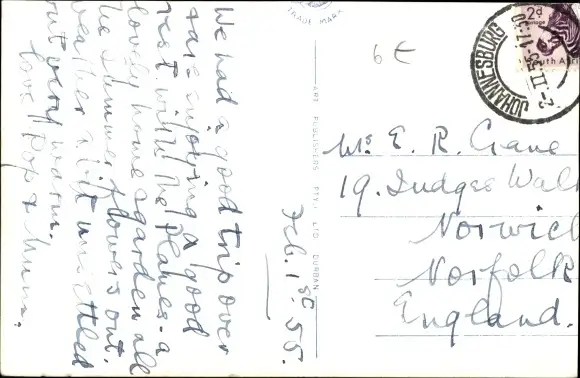 TRADE MARK
6 E
2d
Postage
South Afri
JOHANNESBURG
2-II.55-17:30
ART PUBLISHERS PTY. LTD DURBAN
Feb. 1st. 55.
We had a good trip over
& are enjoying a good
rest with the
lovely home & garden all
the summer flowers out.
weather a bit unsettled
but very warm.
love Pop & Mum.
Mrs E. R. Crane
19. Judges Walk
Norwich
Norfolk
England.